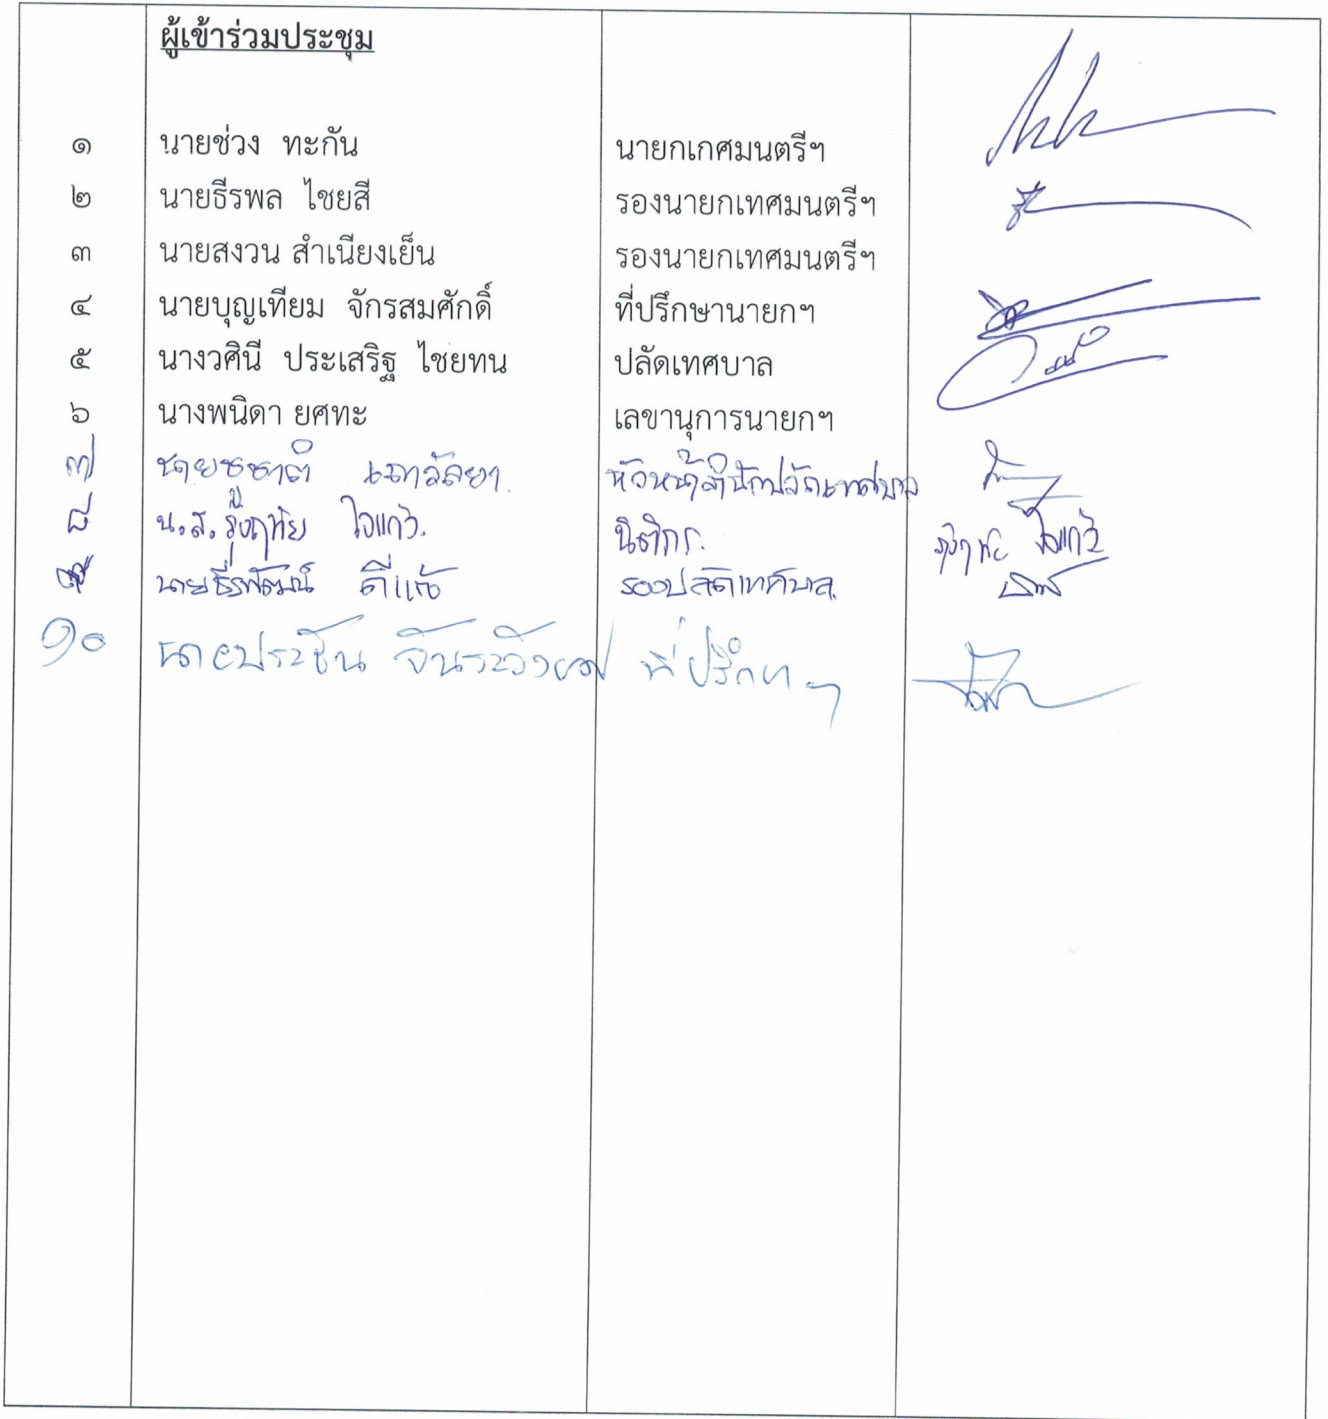 ผู้เข้าร่วมประชุม
๑ นายช่วง ทะกัน นายกเกศมนตรีฯ
๒ นายธีรพล ไชยสี รองนายกเทศมนตรีฯ
๓ นายสงวน สำเนียงเย็น รองนายกเทศมนตรีฯ
๔ นายบุญเทียม จักรสมศักดิ์ ที่ปรึกษานายกฯ
๕ นางวศินี ประเสริฐ ไชยทน ปลัดเทศบาล
๖ นางพนิดา ยศทะ เลขานุการนายกฯ
๗ หัวหน้าสำนักปลัดเทศบาล
๘ น.ส. รุ่งฤทัย ใจแก้ว. นิติกร. รุ่งฤทัย ใจแก้ว
๙ นายธีรพัฒน์ ดีแก้ว รองปลัดเทศบาล.
๑๐ นายประชัน ที่ปรึกษาฯ